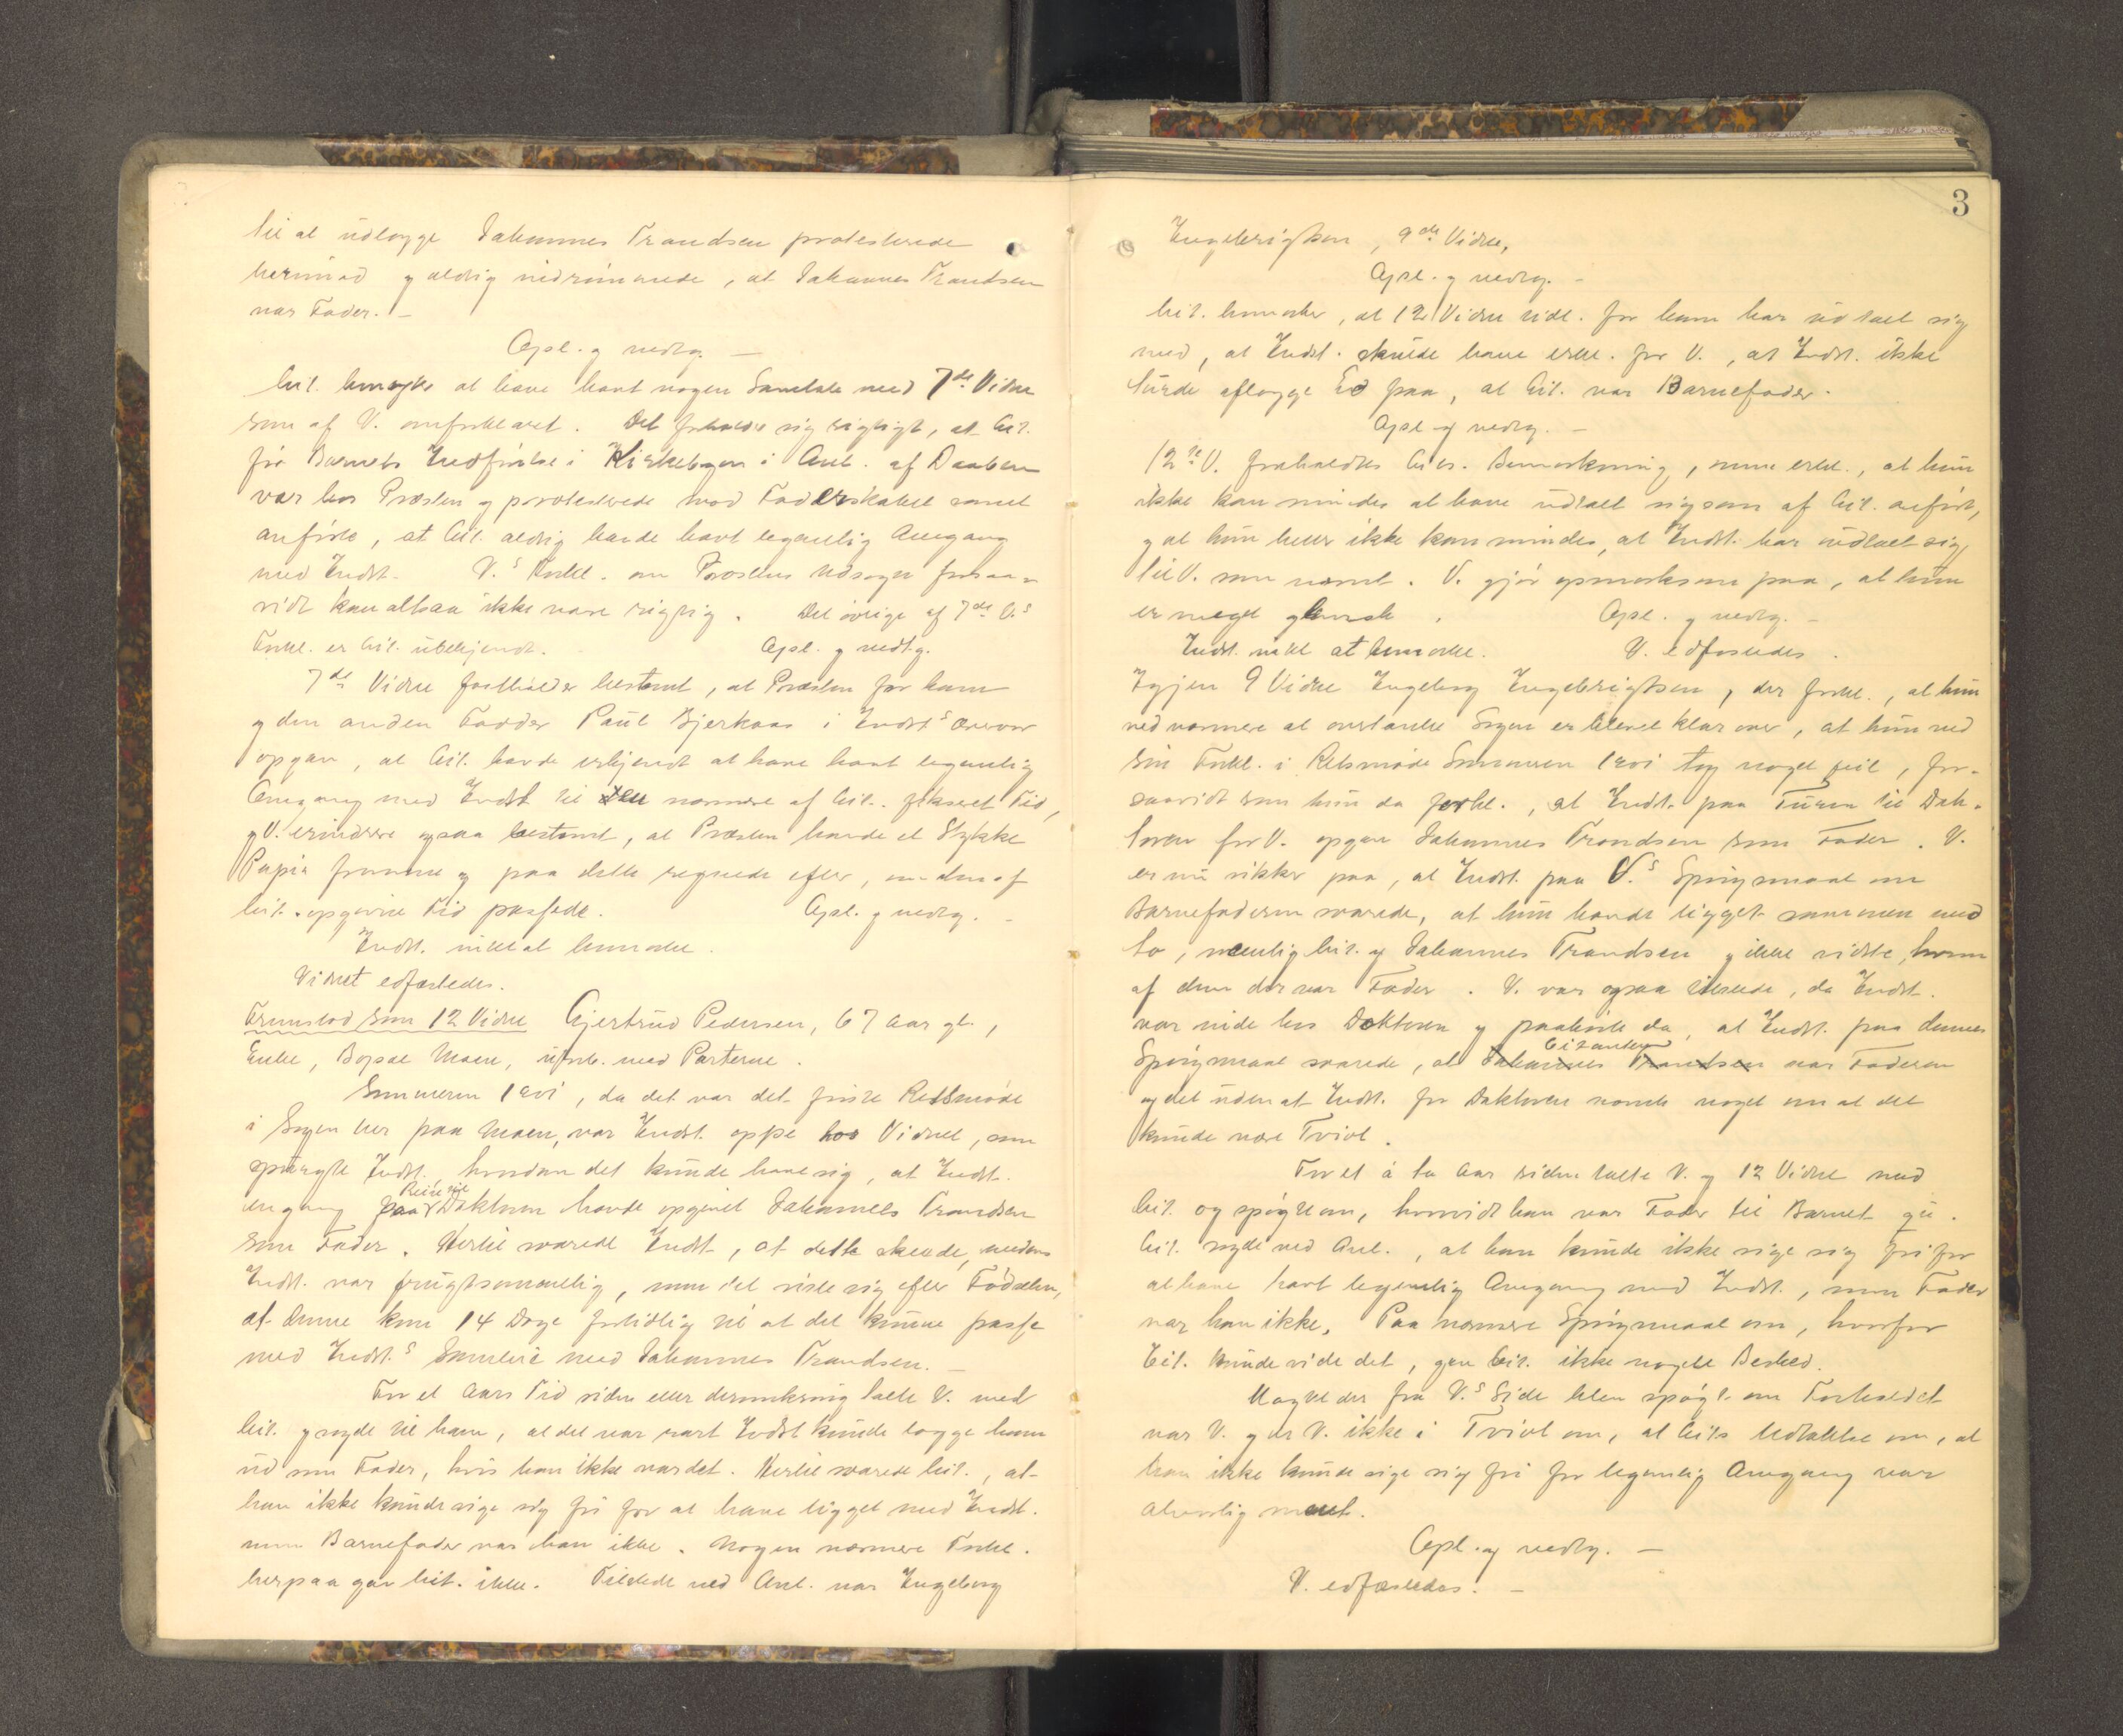 til at udlægge Johannes Trondsen protesterede
herimod og aldrig indrømmede, at Johannes Trondsen
var Fader. –
Opl. og vedtg. –
Cit. benegter at have havt nogen Samtale med 7de Vidne
som af V. omforklaret. Det forholder sig rigtigt, at Cit.
før Barnets Indførelse i Kirkebogen i Anl. af Daaben
var hos Præsten og protesterede mod Faderskabet samt
anførte, at Cit. aldrig havde havt legemlig Omgang
med Indst. V.s Forkl. om Præstens Udsagn forsaa-
vidt kan altsaa ikke være rigtig. Det øvrige af 7de V.s
Forkl. er Cit. ubekjendt. Opl. og vedtg.
7de Vidne fastholder bestemt, at Præsten for ham
og den anden Fadder Paul Bjerkaas i Indsts Nærvær
opgav, at Cit. havde erkjendt at have havt legemlig
Omgang med Indst til den nærmere af Cit. fikseret Tid,
og V. erindrer ogsaa bestemt, at Præsten havde et Stykke
Papir fremme og paa dette regnede efter, om den af
Cit. opgivne Tid passede. Opl. og vedtg. –
Indst. intet at bemærke.
Vidnet edfæstedes.
Fremstod som 12 Vidne Gjertrud Pedersen, 67 Aar gl.,
Enke, Bopæl Moen, uforb. med Parterne.
Sommeren 1901, da det var det første Retsmøde
i Sagen her paa Moen, var Indst. oppe hos Vidnet, som
spurgte Indst. hvordan det kunde have sig, at Indst.
engang paa Reise til Doktoren havde opgivet Johannes Trondsen
som Fader. Hertil svarede Indst., at dette skeede, medens
Indst. var frugtsommelig, men det viste sig efter Fødselen,
at denne kom 14 Dage fortidlig til at det kunne passe
med Indst.s Samleie med Johannes Trondsen. –
For et Aars Tid siden eller deromkring talte V. med
Cit. og sagde til ham, at det var rart Indst kunde lægge ham
ud som Fader, hvis han ikke var det. Hertil svarede Cit., at
han ikke kunde sige sig fri for at have ligget med Indst.
men Barnefader var han ikke. Nogen nærmere Forkl.
herpaa gav Cit. ikke. Tilstede ved Anl. var Ingeborg
3
Engebrigtsen, 9de Vidne,
Opl. og vedtg. –
Cit. bemærker, at 12 Vidne vidt. for ham har udtalt sig
med, at Indst. skulde have erkl. for V., at Indst. ikke
turde aflægge Ed paa, at Cit. var Barnefader.
Opl. og vedtg. –
12te V. foreholdtes Cit.s Bemærkning, men erkl., at hun
ikke kan mindes at have udtalt sig som af Cit. anført,
og at hun heller ikke kan mindes, at Indst. har udtalt sig
til V. som nævnt. V. gjør opmærksom paa, at hun
er meget glemsk. Opl. og vedtg. –
Indst. intet at bemærke. V. edfæstedes.
Igjen 9 Vidne Ingeborg Engebrigtsen, der forkl., at hun
ved nærmere at overtænke Sagen er blevet klar over, at hun ved
sin Forkl. i Retsmøde Sommeren 1901 tog noget feil, for-
saavidt som hun da forkl., at Indst. paa Turen til Dok-
toren for V. opgav Johannes Trondsen som Fader. V.
er nu sikker paa, at Indst. paa V.s Spørgsmaal om
Barnefaderen svarede, at hun havde ligget sammen med
to, nemlig Cit. og Johannes Trondsen og ikke vidste, hvem
af dem der var Fader. V. var ogsaa tilstede, da Indst.
var inde hos Doktoren og paahørte da, at Indst. paa dennes
Spørgsmaal svarede, at Johannes Trondsen Citanten var Faderen
og det uden at Indst. for Doktoren nævnte noget om at det
kunde være Tvivl.
For et à to Aar siden talte V. og 12 Vidne med
Cit. og spøgte om, hvorvidt han var Fader til Barnet
Cit. sagde ved Anl., at han kunde ikke sige sig fri for
at have havt legemlig Omgang med Indst., men Fader
var han ikke. Paa nærmere Spørgsmaal om, hvorfor
Cit. kunde vide det, gav Cit. ikke noget Besked.
Uagtet der fra V.s Side blev spøgt om Forholdet
var V. og er V. ikke i Tvivl om, at Cits Udtalelse om, at
han ikke kunde sige sig fri for legemlig Omgang var
alvorlig ment.
Opl. og vedtg. –
V. edfæstedes. –